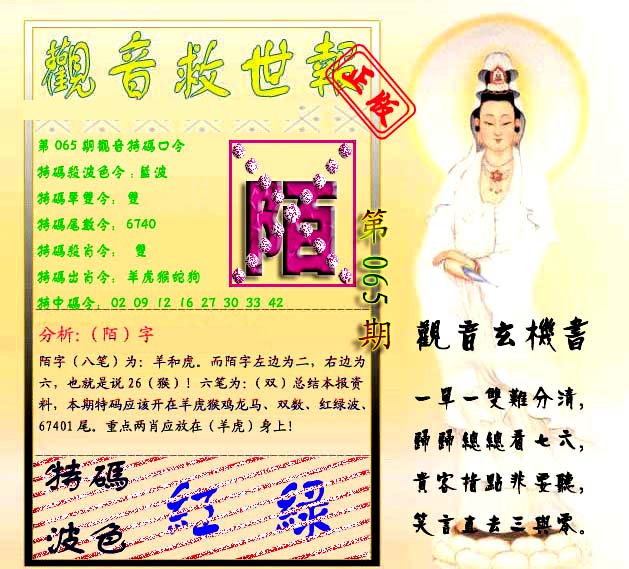 觀音救世報
正版
第065期觀音特碼口令
特碼殺波色令:藍波
特碼單雙令: 雙
特碼尾數令: 6740
特碼殺肖令: 雙
特碼出肖令: 羊虎猴蛇狗
特中碼令: 02 09 12 16 27 30 33 42
陌
第065期
分析:(陌)字
陌字(八笔)为:羊和虎。而陌字左边为二,右边为
六,也就是说26(猴)!六笔为:(双)总结本报资
料,本期特码应该开在羊虎猴鸡龙马、双数、红绿波、
67401尾。重点两肖应放在(羊虎)身上!
特碼
波色
紅 綠
觀音玄機書
一單一雙難分清,
歸歸總總看七六,
貴客指點非要聽,
笑言直去三與零。